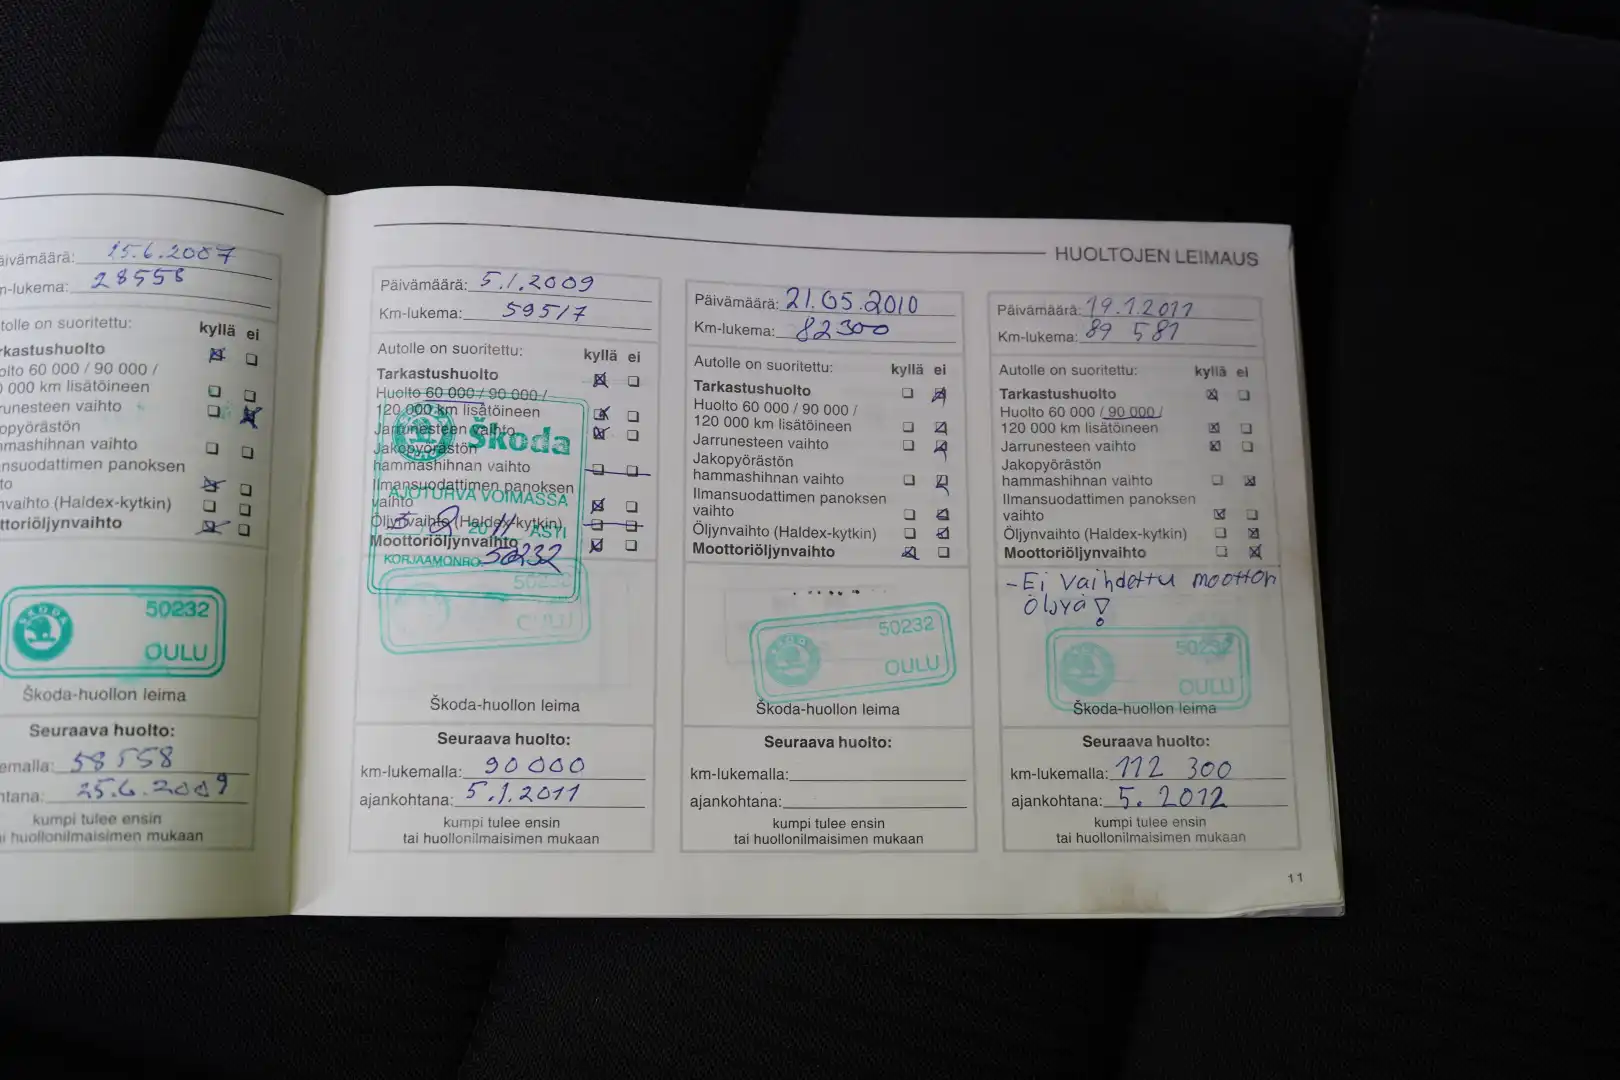 15.6.2007
28558
tolle on suoritettu:
kyllä ei
rkastushuolto
olto 60 000 / 90 000 /
000 km lisätöineen
runesteen vaihto
opyörästön
mmashihnan vaihto
nsuodattimen panoksen
to
vaihto (Haldex-kytkin)
ttoriöljynvaihto
ŠKODA
50232
OULU
Škoda-huollon leima
Seuraava huolto:
emalla: 58558
htana: 25.6.2009
kumpi tulee ensin
ai huollonilmaisimen mukaan
HUOLTOJEN LEIMAUS
Päivämäärä: 5.1.2009
Km-lukema: 59517
Autolle on suoritettu:
kyllä ei
Tarkastushuolto
Huolto 60 000 / 90 000 /
120 000 km lisätöineen
Jarrunesteen vaihto
Jakopyörästön
hammashihnan vaihto
Ilmansuodattimen panoksen
vaihto
Öljynvaihto (Haldex-kytkin)
Moottoriöljynvaihto
Škoda
AJOTURVA VOIMASSA
20 11 ASTI
KORJAAMONRO. 50232
50232
OULU
Škoda-huollon leima
Seuraava huolto:
km-lukemalla: 90000
ajankohtana: 5.1.2011
kumpi tulee ensin
tai huollonilmaisimen mukaan
Päivämäärä: 21.05.2010
Km-lukema: 82300
Autolle on suoritettu:
kyllä ei
Tarkastushuolto
Huolto 60 000 / 90 000 /
120 000 km lisätöineen
Jarrunesteen vaihto
Jakopyörästön
hammashihnan vaihto
Ilmansuodattimen panoksen
vaihto
Öljynvaihto (Haldex-kytkin)
Moottoriöljynvaihto
ŠKODA
50232
OULU
Škoda-huollon leima
Seuraava huolto:
km-lukemalla:
ajankohtana:
kumpi tulee ensin
tai huollonilmaisimen mukaan
Päivämäärä: 19.1.2011
Km-lukema: 89 581
Autolle on suoritettu:
kyllä ei
Tarkastushuolto
Huolto 60 000 / 90 000 /
120 000 km lisätöineen
Jarrunesteen vaihto
Jakopyörästön
hammashihnan vaihto
Ilmansuodattimen panoksen
vaihto
Öljynvaihto (Haldex-kytkin)
Moottoriöljynvaihto
- Ei vaihdettu moottori
öljyä!
50232
OULU
Škoda-huollon leima
Seuraava huolto:
km-lukemalla: 112 300
ajankohtana: 5. 2012
kumpi tulee ensin
tai huollonilmaisimen mukaan
11